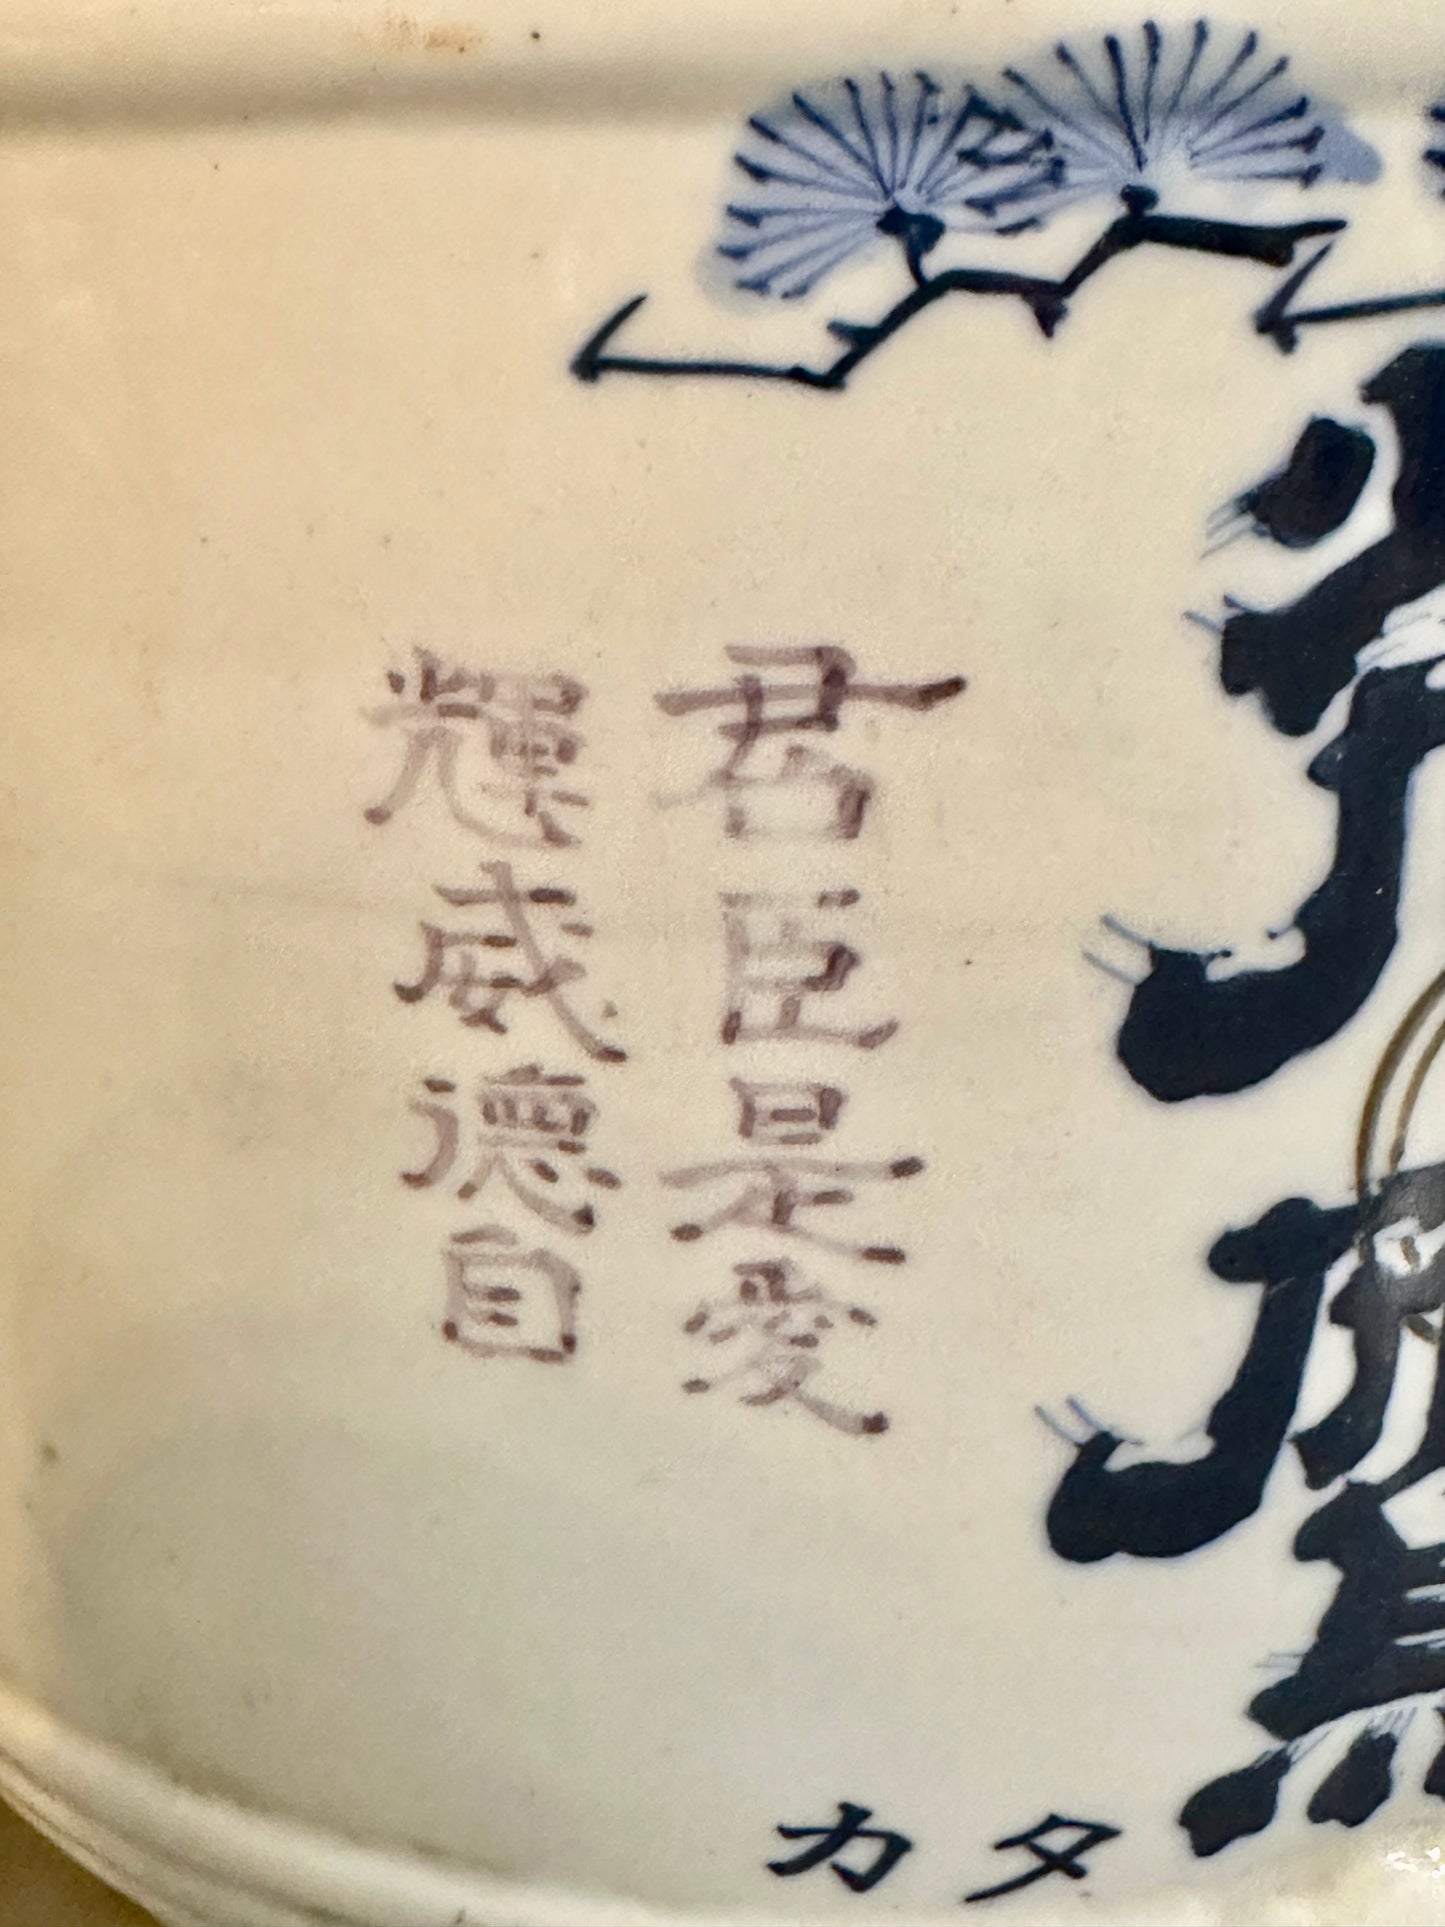 君臣是愛
輝威德自
カタ